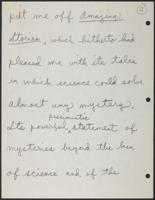 2
put me off Amazing
Stories, which hitherto had
pleased me with its tales
in which science could solve
almost any mystery.
pessimistic
Its powerful statement of
mysteries beyond the ken
of science and of the